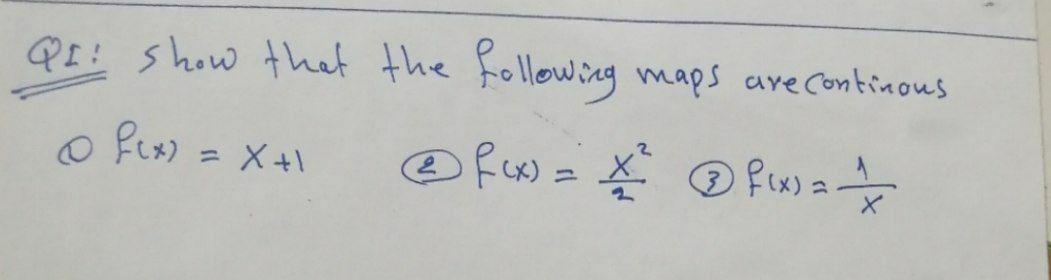 Q1: show that the following maps are continous
① f(x) = x+1 ② f(x) = x²/2 ③ f(x) = 1/x